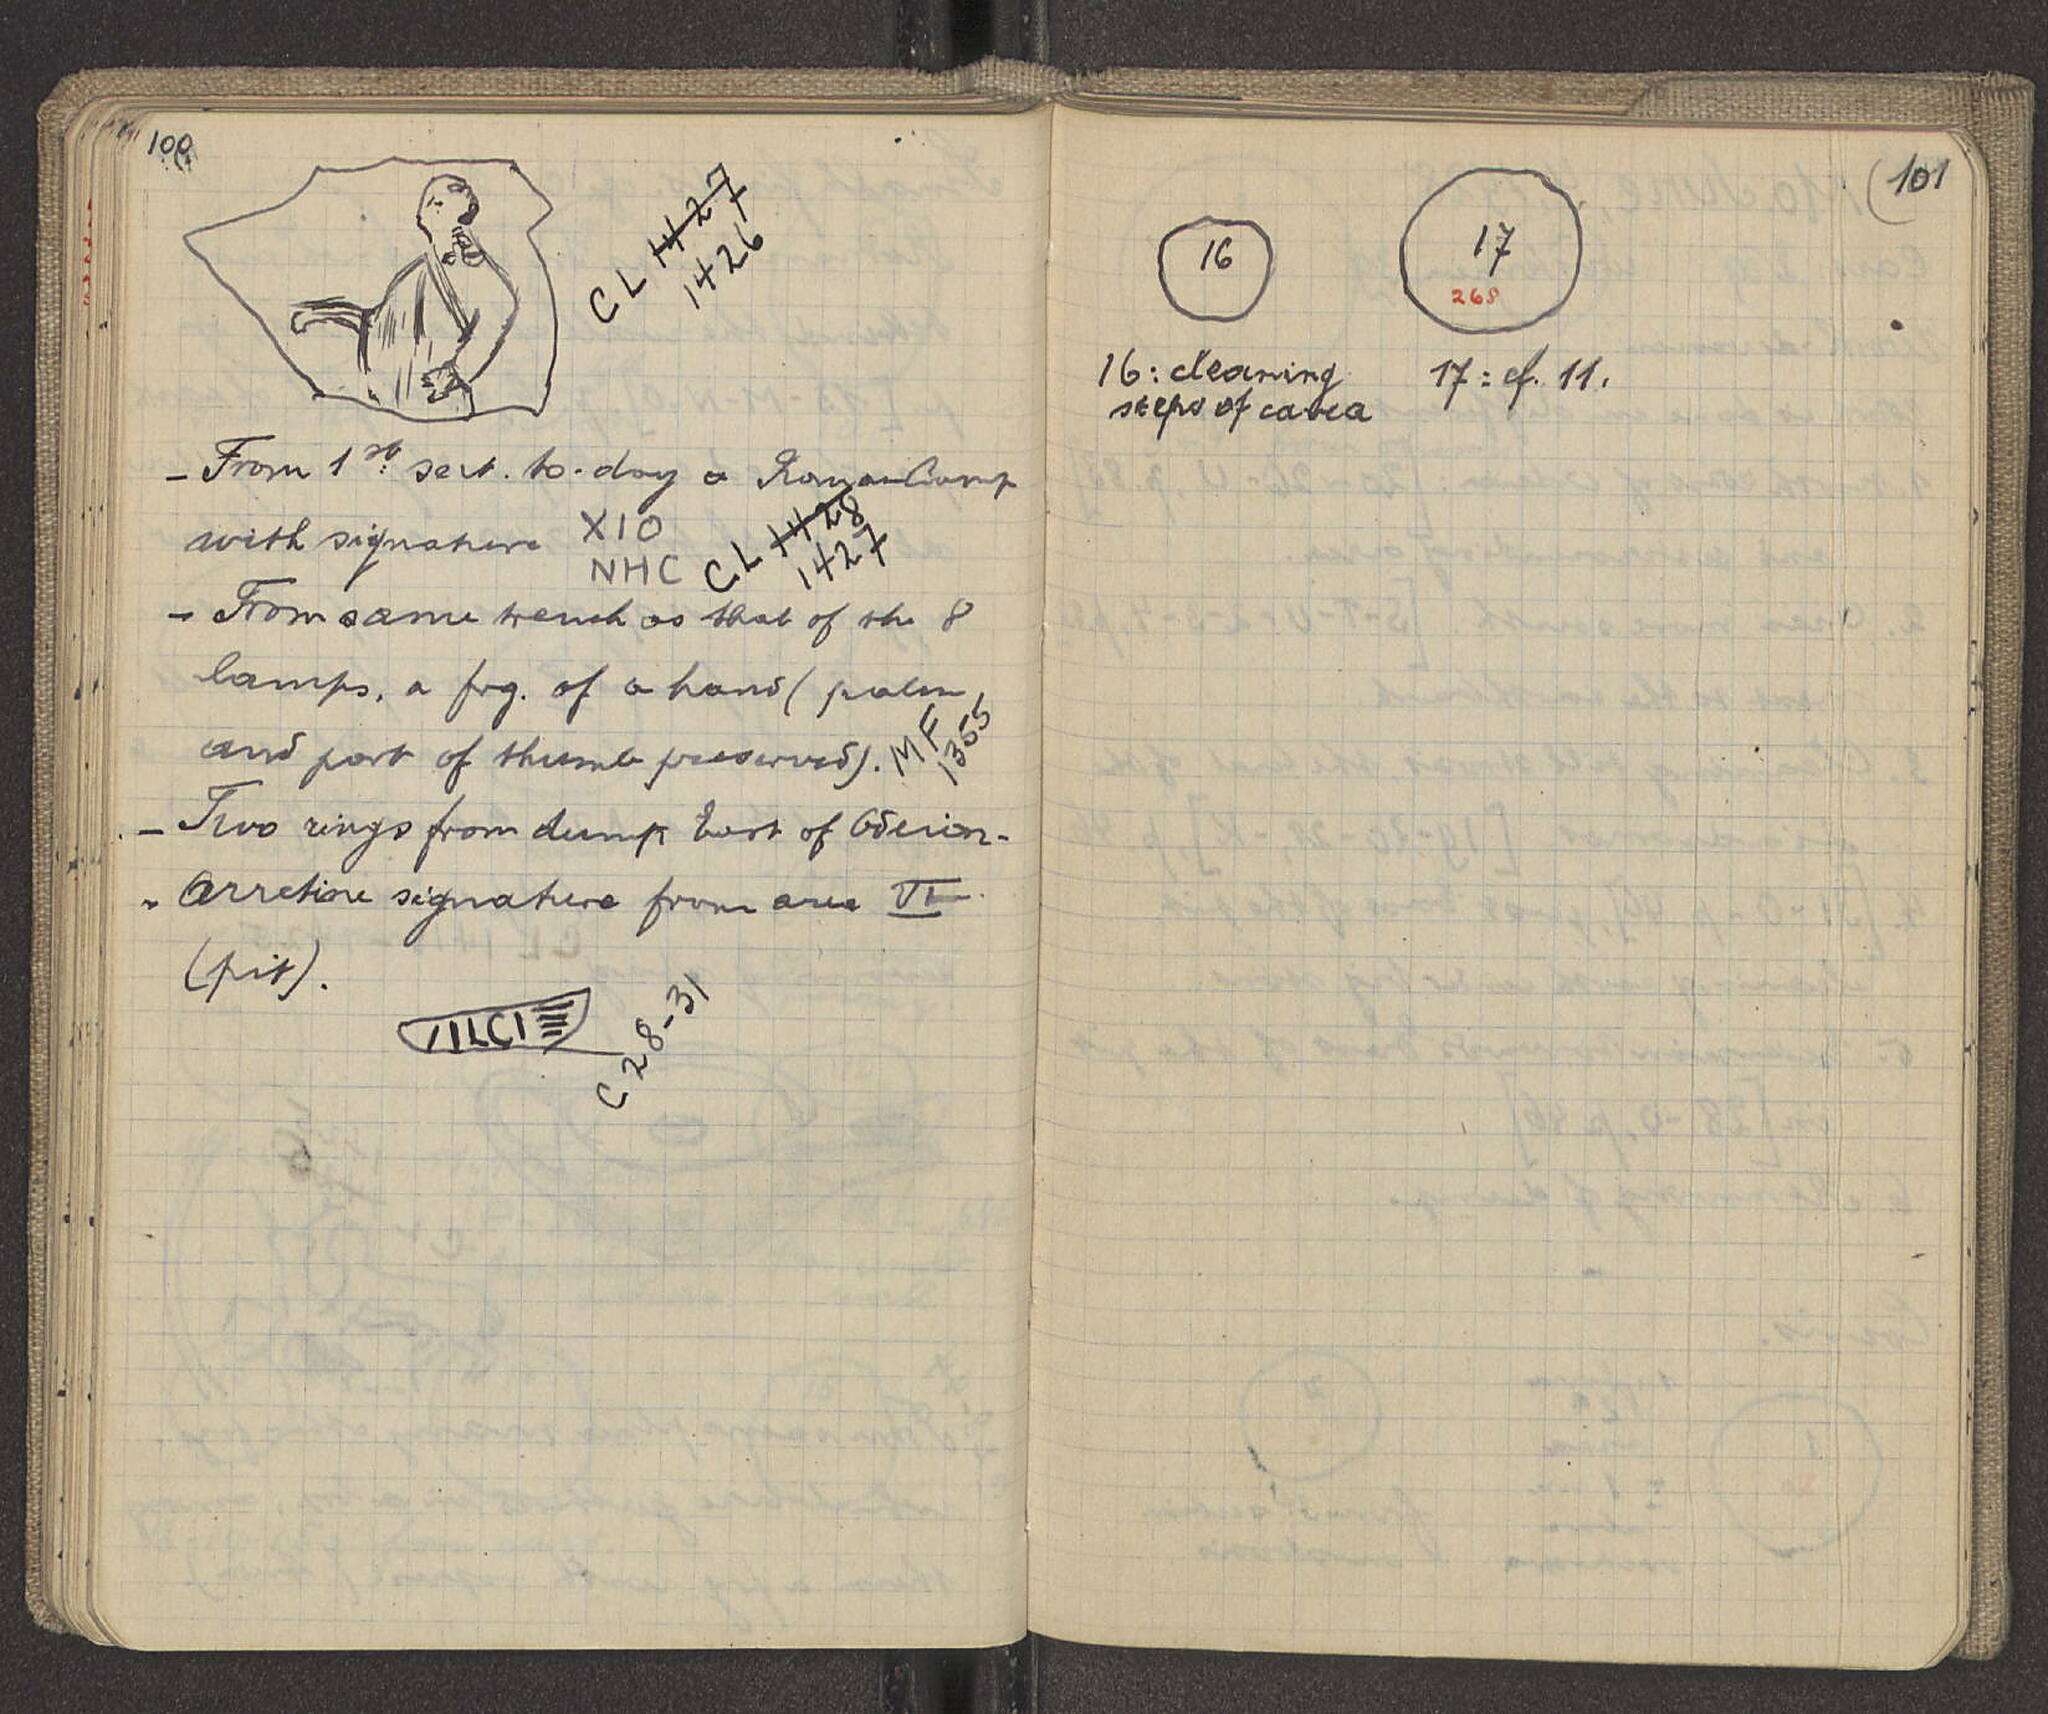 100
CL 1427
1426
- From 1st. sect. to-day a Roman lamp
with signature XIO
NHC
CL 1428
1427
- From same trench as that of the 8
lamps, a frg. of a hand (palm
and part of thumb preserved). MF
1355
- Two rings from dump East of Odeion.
- Arretine signature from area VI
(pit).
C 28-31
101
16
17
268
16: cleaning
steps of cavea
17: cf. 11.